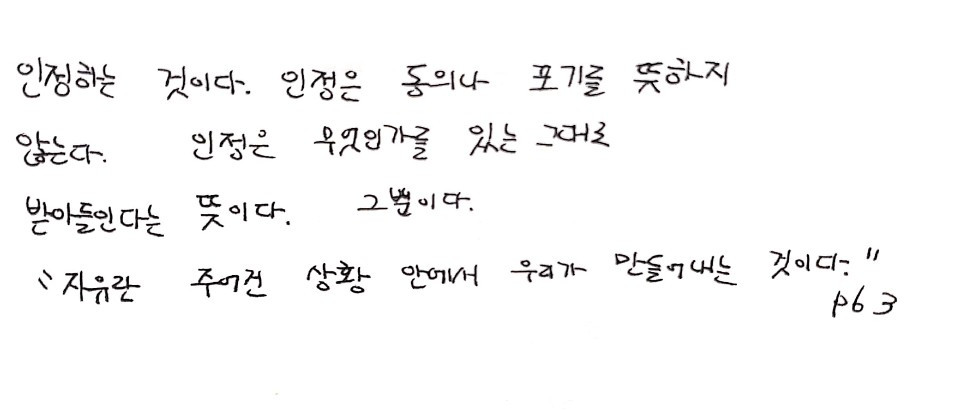 인정하는 것이다. 인정은 동의나 포기를 뜻하지
않는다. 인정은 무엇인가를 있는 그대로
받아들인다는 뜻이다. 그뿐이다.
"자유란 주어진 상황 안에서 우리가 만들어내는 것이다."
p63